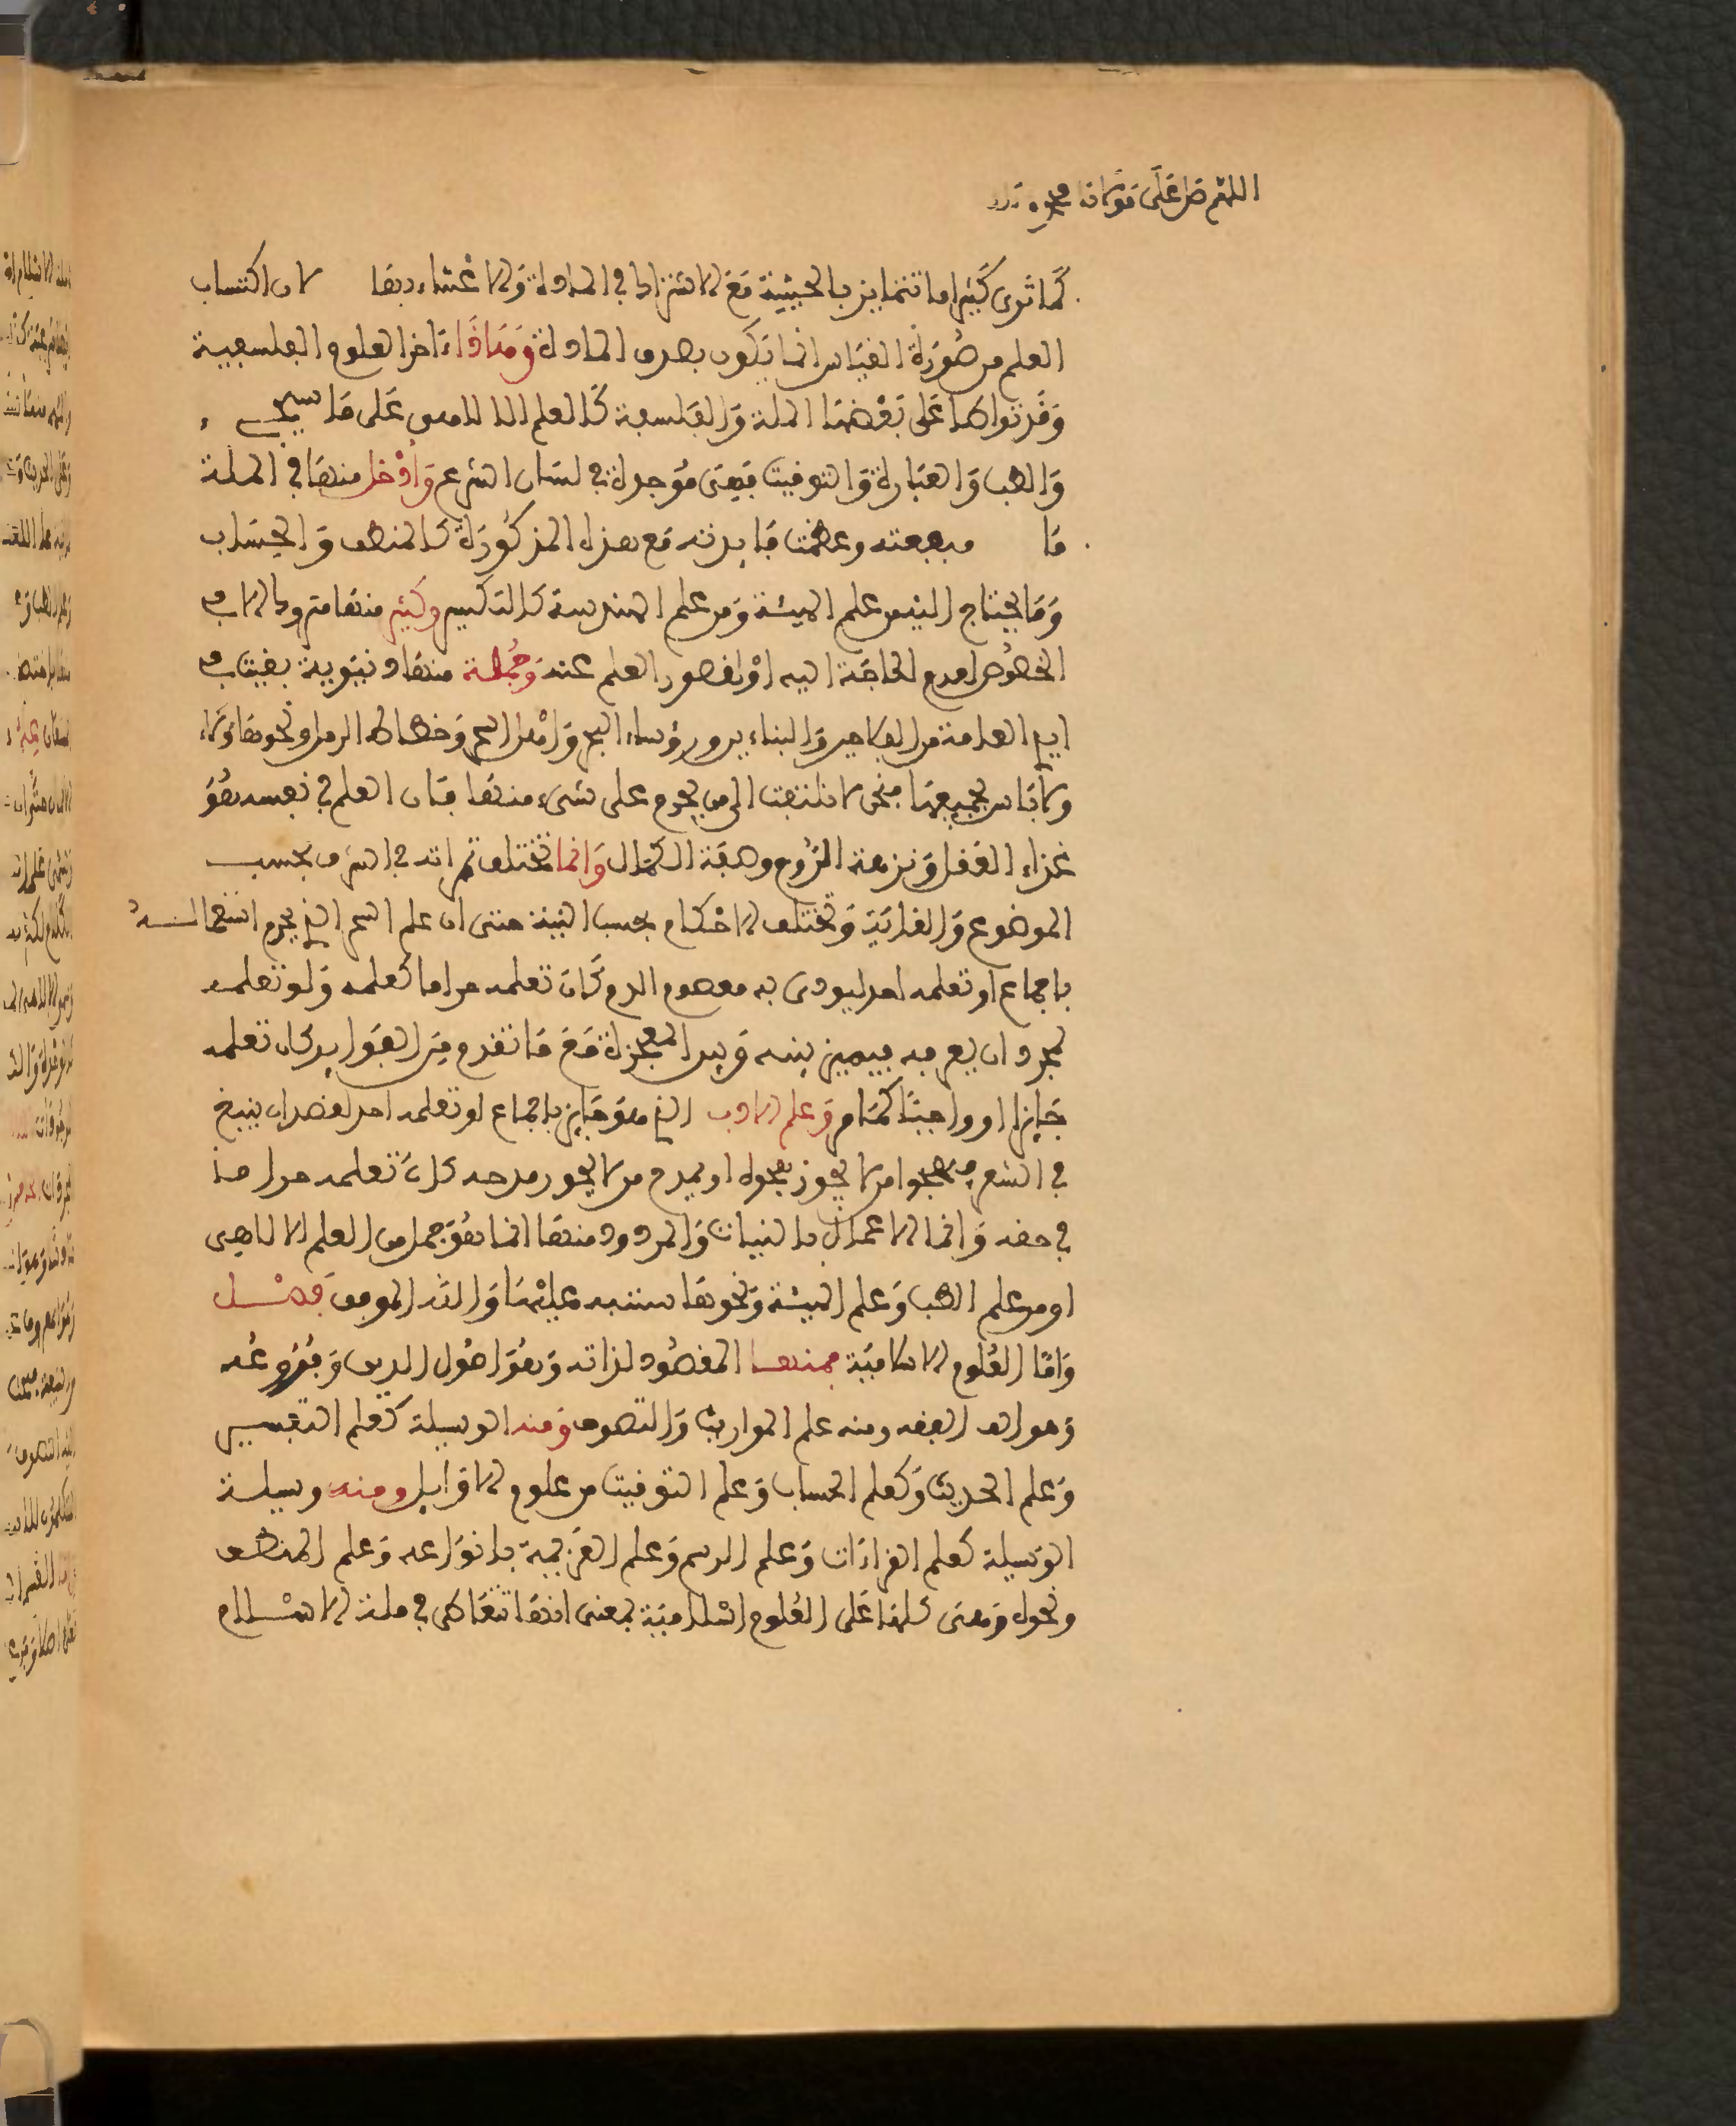 اللهم صل على مولانا محمد
كما ترى كثيرا ما تتمايز بالحيثية مع الاشتراك في المادة ولاعتناء بها لان اكتساب
العلم من صورة القياس انما يكون بصدق المادة ومنافاة اخر العلوم الفلسفية
وقد تواطا على بعضها الملة والفلسفة كالعلم الالاهي على ما سيجيء
والطب والعبارة والتوقيت فهي موجدة في لسان الشرع وادخل منها في الملة
ما منفعته وعظمت فايدته مع هذه المذكورة كالمنطق والحساب
وما يحتاج اليه من علم الهيئة ومن علم الهندسة كالتكسير وكثير منها متروك الا في
الخصوص لعدم الحاجة اليه او لقصور العلم عنه وجملة منها دنيوية بقيت في
ايدي العامة من الفلاحين والبناء يرورؤساء البحر وامراء البحر وخطاط الرمل ونحوها ولا
ولا باس بجميعها فنحن لا نلتفت الى من يحرم على شيء منها فان العلم في نفسه هو
غذاء العقل ونزهة الروح وصفة الكمال وانما تختلف ثمراته في الشرف بحسب
الموضوع والغاية وتختلف الاحكام بحسب النية حتى ان علم السحر الذي يحرم استعماله
باجماع لو تعلمه احد ليودى به معصوم الدم كان تعلمه حراما كعلمه ولو تعلمه
لمجرد ان يعرفه فيميز بينه وبين المعجزة مع ما تقدم من الفوايد كان تعلمه
جايزا او واجبا كما مر وعلم الادب الذي هو جايز باجماع لو تعلمه احد لقصد ان ينبغ
في الشعر فيهجوا من لا يجوز هجوه او يمدح من لا يجوز مدحه كان تعلمه حراما
في حقه وانما الاعمال بالنيات والمردود منها انما هو جمل من العلم الالاهي
او من علم الطب وعلم الهيئة ونحوها سننبه عليها والله الموفق فصل
واما العلوم الاسلامية فمنها المقصود لذاته وهو اصول الدين وفروعه
وهو الفقه ومنه علم المواريث والتصوف ومنه الوسيلة كعلم التفسير
وعلم الحديث وكعلم الحساب وعلم التوقيت من علوم الاوايل ومنه وسيلة
الوسيلة كعلم القراءات وعلم الرسم وعلم العربية بانواعه وعلم المنطق
ونحوه ومعنى كلها على العلوم اسلامية بمعنى انها تتعاطى في ملة الاسلام